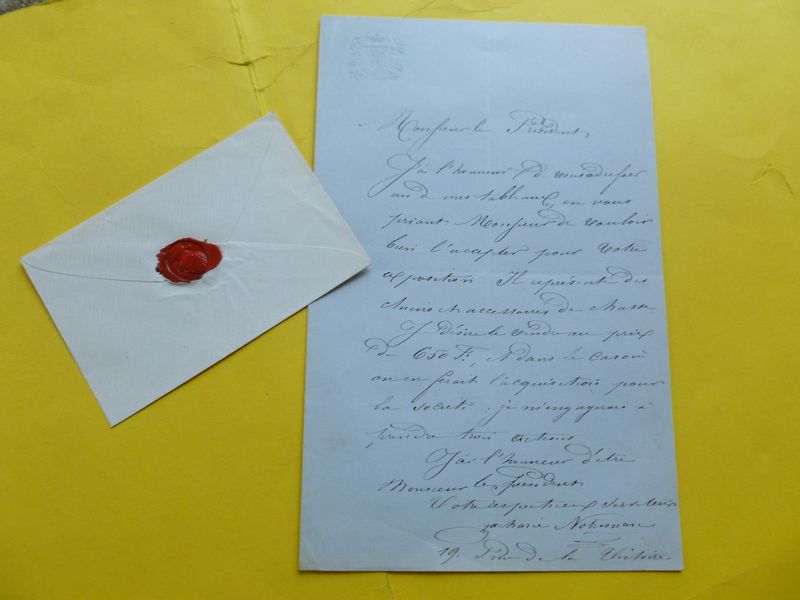 Monsieur le Président
J'ai l'honneur de vous adresser
un de mes tableaux, en vous
priant Monsieur de vouloir
bien l'accepter pour votre
exposition Il représente des
chiens et accessoires de chasse
Je désire le vendre au prix
de 650 Fr, et dans le cas où
on en ferait l'acquisition pour
la société; je m'engagerais à
prendre trois actions
J'ai l'honneur d'être
Monsieur le Président
Votre respectueux serviteur
Zacharie Noterman
19. Rue de la Victoire